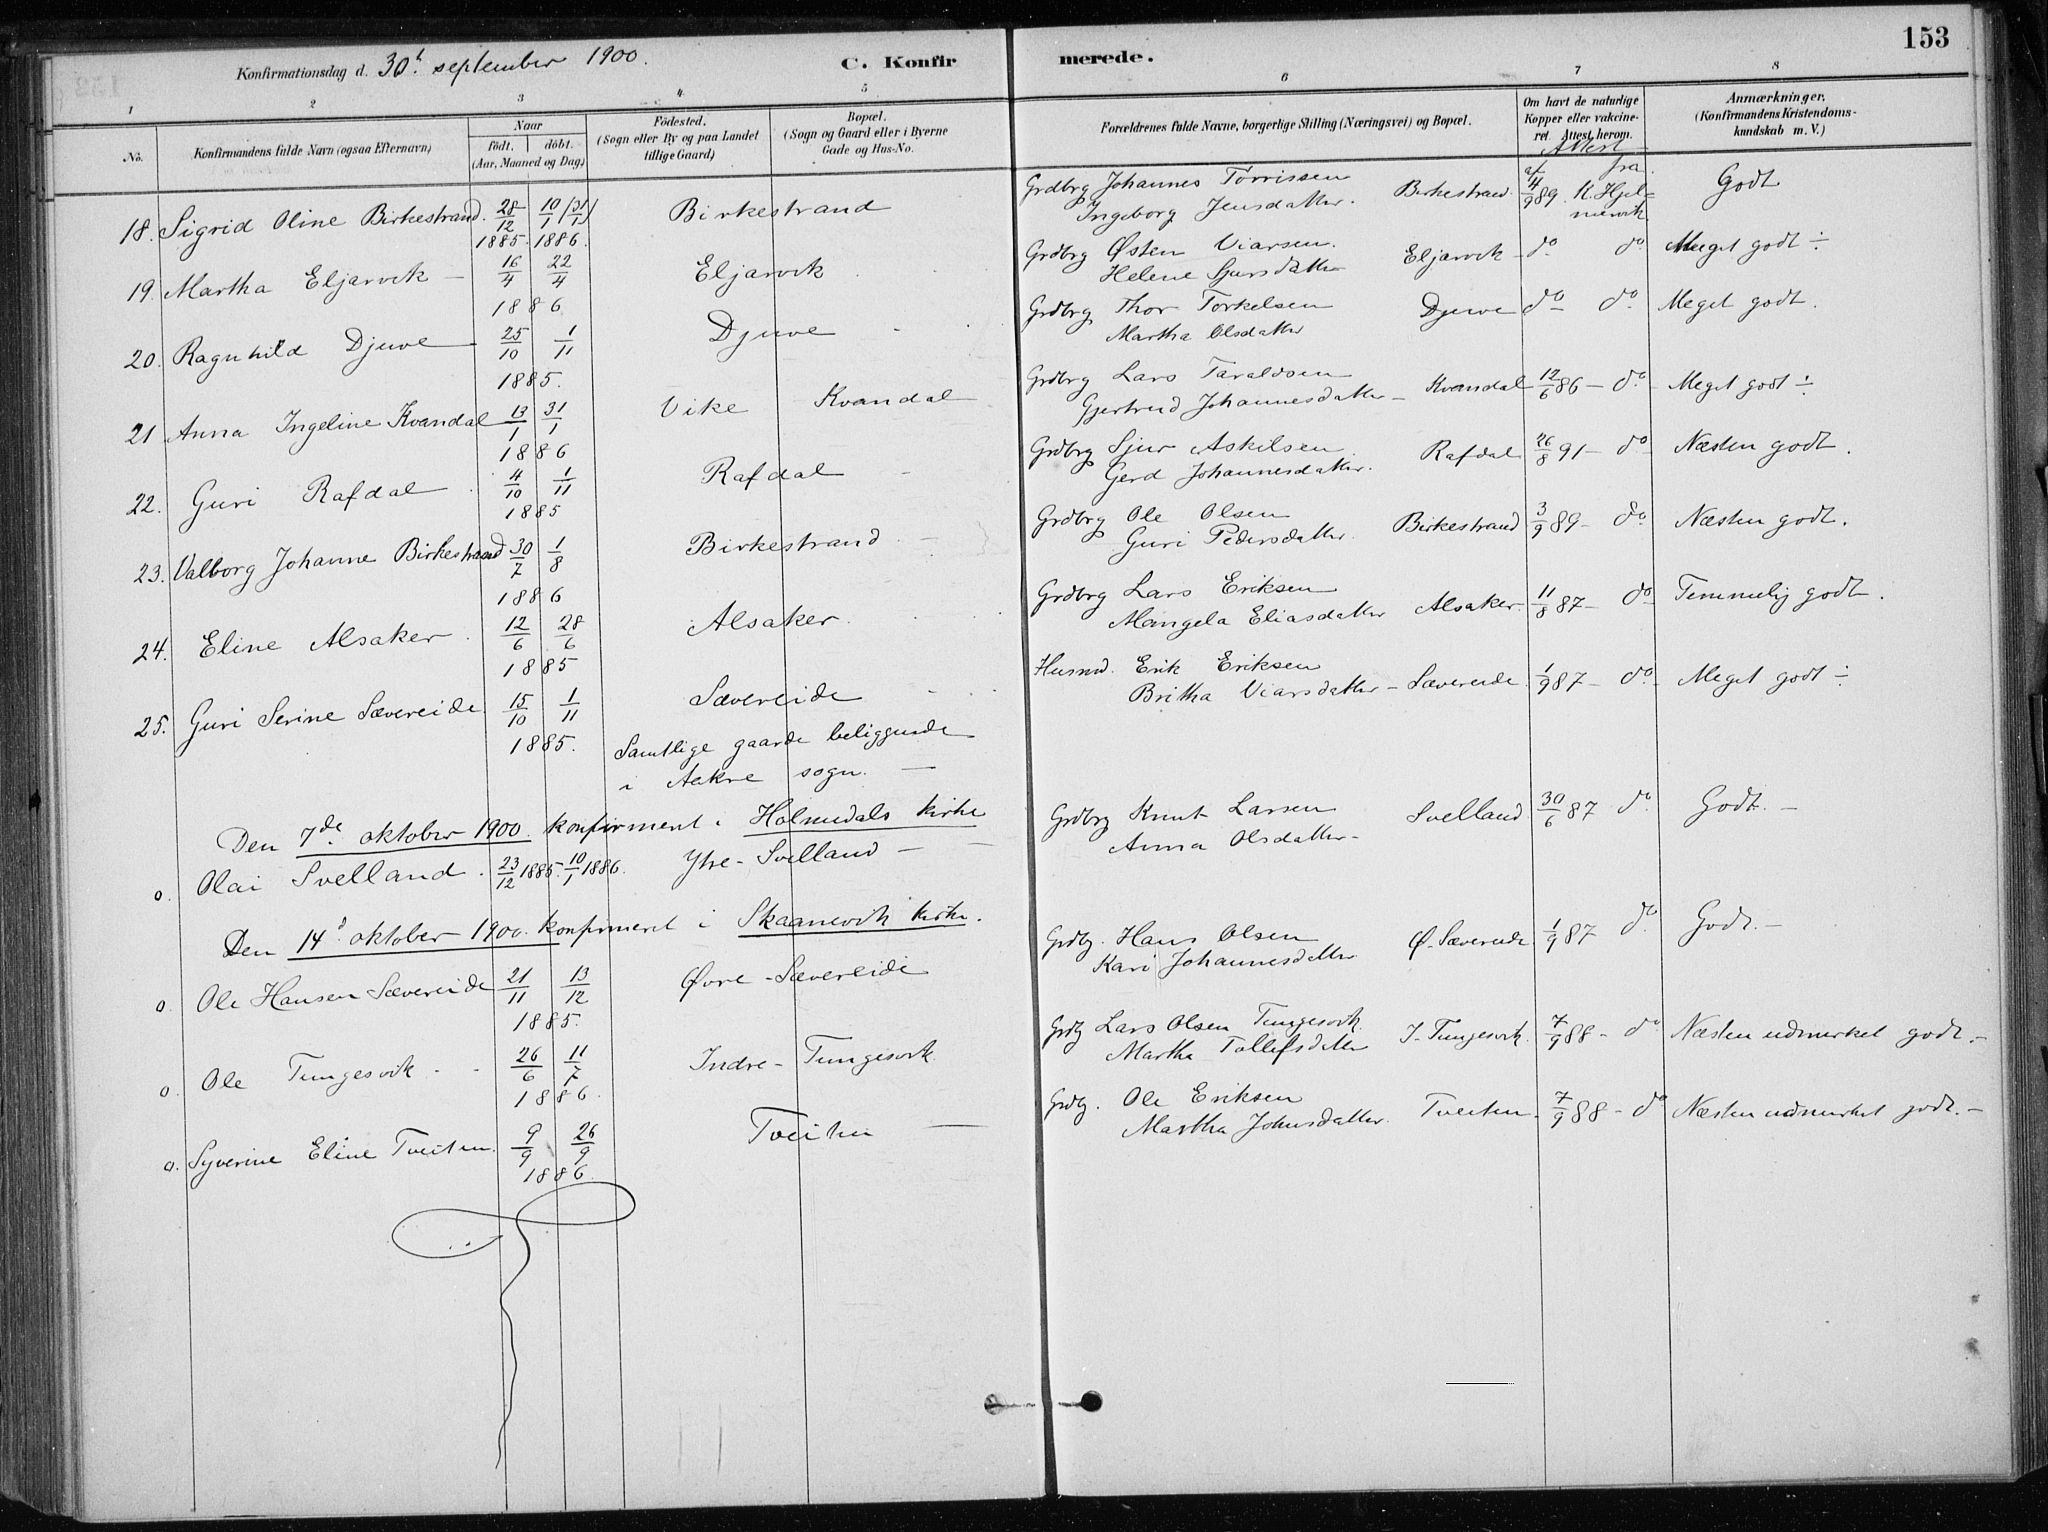 153
Konfirmationsdag d. 30t september 1900.
C. Konfirmerede.
1 2 3 4 5 6 7 8
No. Konfirmandens fulde Navn (ogsaa Efternavn) Naar født. døbt. (Aar, Maaned og Dag) Fødested. (Sogn eller By og paa Landet tillige Gaard) Bopæl. (Sogn og Gaard eller i Byerne Gade og Hus-No. Forældrenes fulde Navne, borgerlige Stilling (Næringsvei) og Bopæl. Om havt de naturlige Kopper eller vakcineret. Attest herom. Anmærkninger. (Konfirmandens Kristendomskundskab m. V.)
Attest
af fra
18. Sigrid Oline Birkestrand. 28/12 1885. 10/1 (31/1) 1886. Birkestrand Grdbrg Johannes Torrissen Ingeborg Jensdatter. Birkestrand 4/9 89. K. Hjelmervik Godt
19. Martha Eljarvik - 16/4 22/4 1886 Eljarvik Grdbrg Østen Viarsen. Helene Sjursdatter Eljarvik - do. do. Meget godt ÷
20. Ragnhild Djuve 25/10 1/11 1885. Djuve Grdbrg Thor Torkelsen Martha Olsdatter Djuve do do Meget godt.
21 Anna Ingeline Kvandal 13/1 31/1 1886 Vike Kvandal Grdbrg Lars Taraldsen Gjertrud Johannesdatter - Kvandal 12/6 86 - do Meget godt ÷
22. Guri Rafdal 4/10 1/11 1885 Rafdal Grdbrg Sjur Askilsen Gerd Johannesdatter. Rafdal 26/8 91 - do Næsten godt.
23. Valborg Johanne Birkestrand 30/7 1/8 1886 Birkestrand Grdbrg Ole Olsen Guri Pedersdatter. Birkestrand 3/9 89 - do. Næsten godt.
24. Eline Alsaker 12/6 28/6 1885 Alsaker. Grdbrg Lars Eriksen Mangela Eliasdatter Alsaker - 11/8 87 - do Temmelig godt.
25. Guri Serine Sævereide 15/10 1/11 1885. Sævereide Husmd. Erik Eriksen Britha Viarsdatter - Sævereide 1/9 87 - do. Meget godt ÷
Samtlige gaarde beliggende
i Aakre sogn. -
Den 7de oktober 1900. konfirmert i Holmedals kirke
o. Olai Svelland. 23/12 1885. 10/1 1886. Ytre-Svelland - Grdbrg Knut Larsen Anna Olsdatter - Svelland 30/6 87 do Godt. -
Den 14d oktober 1900. konfirmeret i Skaanevik kirke.
o. Ole Hansen Sævereide 21/11 13/12 1885. Øvre-Sævereide Grdb. Hans Olsen Kari Johannesdatter Ø-Sævereide 1/9 87 do Godt. -
o. Ole Tungesvik - - 26/6 11/7 1886. Indre-Tungesvik Grdb Lars Olsen Tungesvik. Martha Tollefsdatter I-Tungesvik. 7/9 88 - do Næsten udmerket godt. -
o. Syverine Eline Tveiten. 9/9 26/9 1886. Tveiten Grdb. Ole Eriksen Martha Johnsdatter. Tveiten. 7/9 88 - do Næsten udmerket godt. -